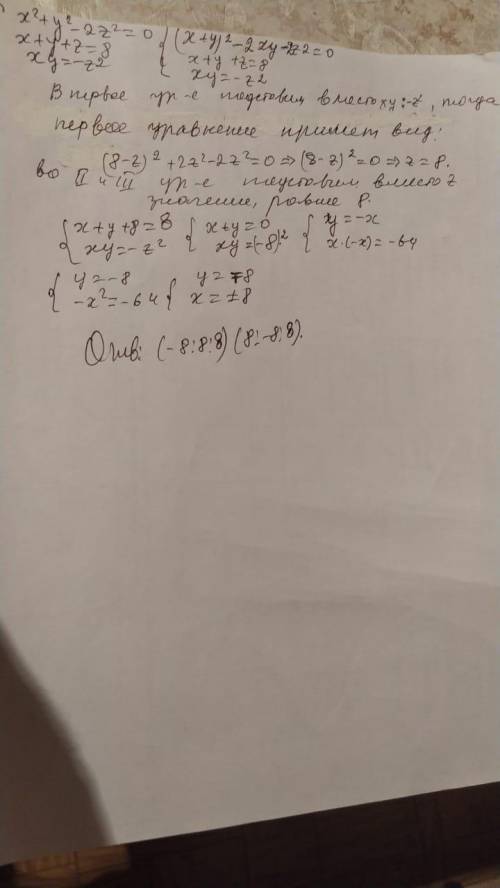 x²+y²-2z²=0 { (x+y)²-2xy-2z2=0
x+y+z=8 x+y+z=8
xy=-z2 xy=-z2
В первое ур-е подставим вместо xy:-z², тогда
первое уравнение примет вид:
(8-z)²+2z²-2z²=0⇒(8-z)²=0⇒z=8.
во II и III ур-е подставим вместо z
значение, равное 8.
{ x+y+8=8 { x+y=0 { y=-x
xy=-z² xy=(-8)² x·(-x)=-64
{ y=-8 { y=∓8
-x²=-64 x=±8
Отв: (-8;8;8)(8;-8;8).